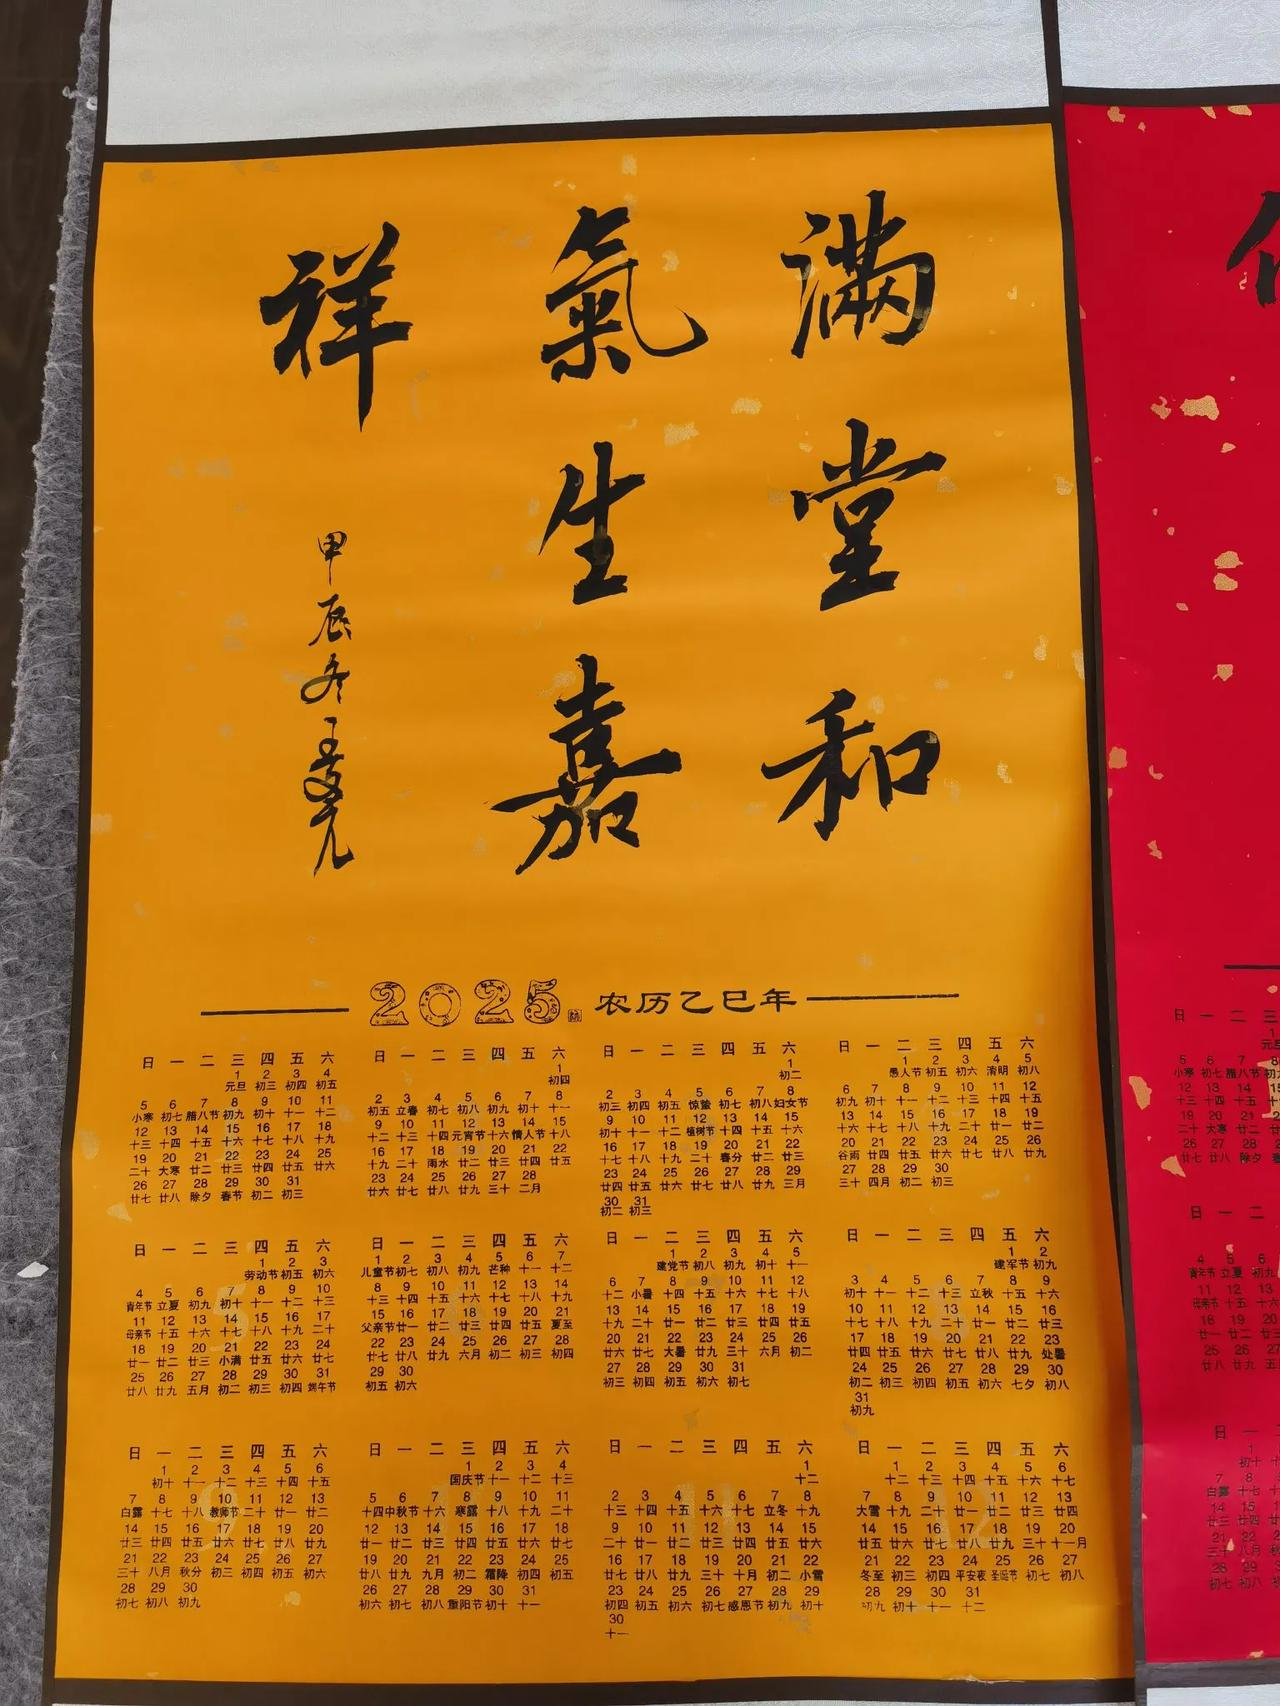 滿堂和
氣生嘉
祥
甲辰冬
2025 农历乙巳年
日 一 二 三 四 五 六
1 2 3 4
元旦 初三 初四 初五
5 6 7 8 9 10 11
小寒 初七 腊八节 初九 初十 十一 十二
12 13 14 15 16 17 18
十三 十四 十五 十六 十七 十八 十九
19 20 21 22 23 24 25
二十 大寒 廿二 廿三 廿四 廿五 廿六
26 27 28 29 30 31
廿七 廿八 除夕 春节 初二 初三
日 一 二 三 四 五 六
1
初四
2 3 4 5 6 7 8
初五 立春 初七 初八 初九 初十 十一
9 10 11 12 13 14 15
十二 十三 十四 元宵节 十六 情人节 十八
16 17 18 19 20 21 22
十九 二十 雨水 廿二 廿三 廿四 廿五
23 24 25 26 27 28
廿六 廿七 廿八 廿九 三十 二月
日 一 二 三 四 五 六
1
初二
2 3 4 5 6 7 8
初三 初四 初五 惊蛰 初七 初八 妇女节
9 10 11 12 13 14 15
初十 十一 十二 植树节 十四 十五 十六
16 17 18 19 20 21 22
十七 十八 十九 二十 春分 廿二 廿三
23 24 25 26 27 28 29
廿四 廿五 廿六 廿七 廿八 廿九 三月
30 31
初二 初三
日 一 二 三 四 五 六
1 2 3 4 5
愚人节 初五 初六 清明 初八
6 7 8 9 10 11 12
初九 初十 十一 十二 十三 十四 十五
13 14 15 16 17 18 19
十六 十七 十八 十九 二十 廿一 廿二
20 21 22 23 24 25 26
谷雨 廿四 廿五 廿六 廿七 廿八 廿九
27 28 29 30
三十 四月 初二 初三
日 一 二 三 四 五 六
1 2 3
劳动节 初五 初六
4 5 6 7 8 9 10
青年节 立夏 初九 初十 十一 十二 十三
11 12 13 14 15 16 17
母亲节 十五 十六 十七 十八 十九 二十
18 19 20 21 22 23 24
廿一 廿二 廿三 小满 廿五 廿六 廿七
25 26 27 28 29 30 31
廿八 廿九 五月 初二 初三 初四 端午节
日 一 二 三 四 五 六
1 2 3 4 5 6 7
儿童节 初七 初八 初九 芒种 十一 十二
8 9 10 11 12 13 14
十三 十四 十五 十六 十七 十八 十九
15 16 17 18 19 20 21
父亲节 廿一 廿二 廿三 廿四 廿五 夏至
22 23 24 25 26 27 28
廿七 廿八 廿九 六月 初二 初三 初四
29 30
初五 初六
日 一 二 三 四 五 六
1 2 3 4 5
建党节 初八 初九 初十 十一
6 7 8 9 10 11 12
十二 小暑 十四 十五 十六 十七 十八
13 14 15 16 17 18 19
十九 二十 廿一 廿二 廿三 廿四 廿五
20 21 22 23 24 25 26
廿六 廿七 大暑 廿九 三十 六月 初二
27 28 29 30 31
初三 初四 初五 初六 初七
日 一 二 三 四 五 六
1 2
建军节 初九
3 4 5 6 7 8 9
初十 十一 十二 十三 立秋 十五 十六
10 11 12 13 14 15 16
十七 十八 十九 二十 廿一 廿二 廿三
17 18 19 20 21 22 23
廿四 廿五 廿六 廿七 廿八 廿九 处暑
24 25 26 27 28 29 30
初二 初三 初四 初五 初六 七夕 初八
31
初九
日 一 二 三 四 五 六
1 2 3 4 5 6
初十 十一 十二 十三 十四 十五
7 8 9 10 11 12 13
白露 十七 十八 教师节 二十 廿一 廿二
14 15 16 17 18 19 20
廿三 廿四 廿五 廿六 廿七 廿八 廿九
21 22 23 24 25 26 27
三十 八月 秋分 初三 初四 初五 初六
28 29 30
初七 初八 初九
日 一 二 三 四 五 六
1 2 3 4
国庆节 十一 十二 十三
5 6 7 8 9 10 11
十四 中秋节 十六 寒露 十八 十九 二十
12 13 14 15 16 17 18
廿一 廿二 廿三 廿四 廿五 廿六 廿七
19 20 21 22 23 24 25
廿八 廿九 九月 初二 霜降 初四 初五
26 27 28 29 30 31
初六 初七 初八 重阳节 初十 十一
日 一 二 三 四 五 六
1
十二
2 3 4 5 6 7 8
十三 十四 十五 十六 十七 立冬 十九
9 10 11 12 13 14 15
二十 廿一 廿二 廿三 廿四 廿五 廿六
16 17 18 19 20 21 22
廿七 廿八 廿九 三十 十月 初二 小雪
23 24 25 26 27 28 29
初四 初五 初六 初七 感恩节 初九 初十
30
十一
日 一 二 三 四 五 六
1 2 3 4 5 6
十二 十三 十四 十五 十六 十七
7 8 9 10 11 12 13
大雪 十九 二十 廿一 廿二 廿三 廿四
14 15 16 17 18 19 20
廿五 廿六 廿七 廿八 廿九 三十 十一月
21 22 23 24 25 26 27
冬至 初三 初四 平安夜 圣诞节 初七 初八
28 29 30 31
初九 初十 十一 十二